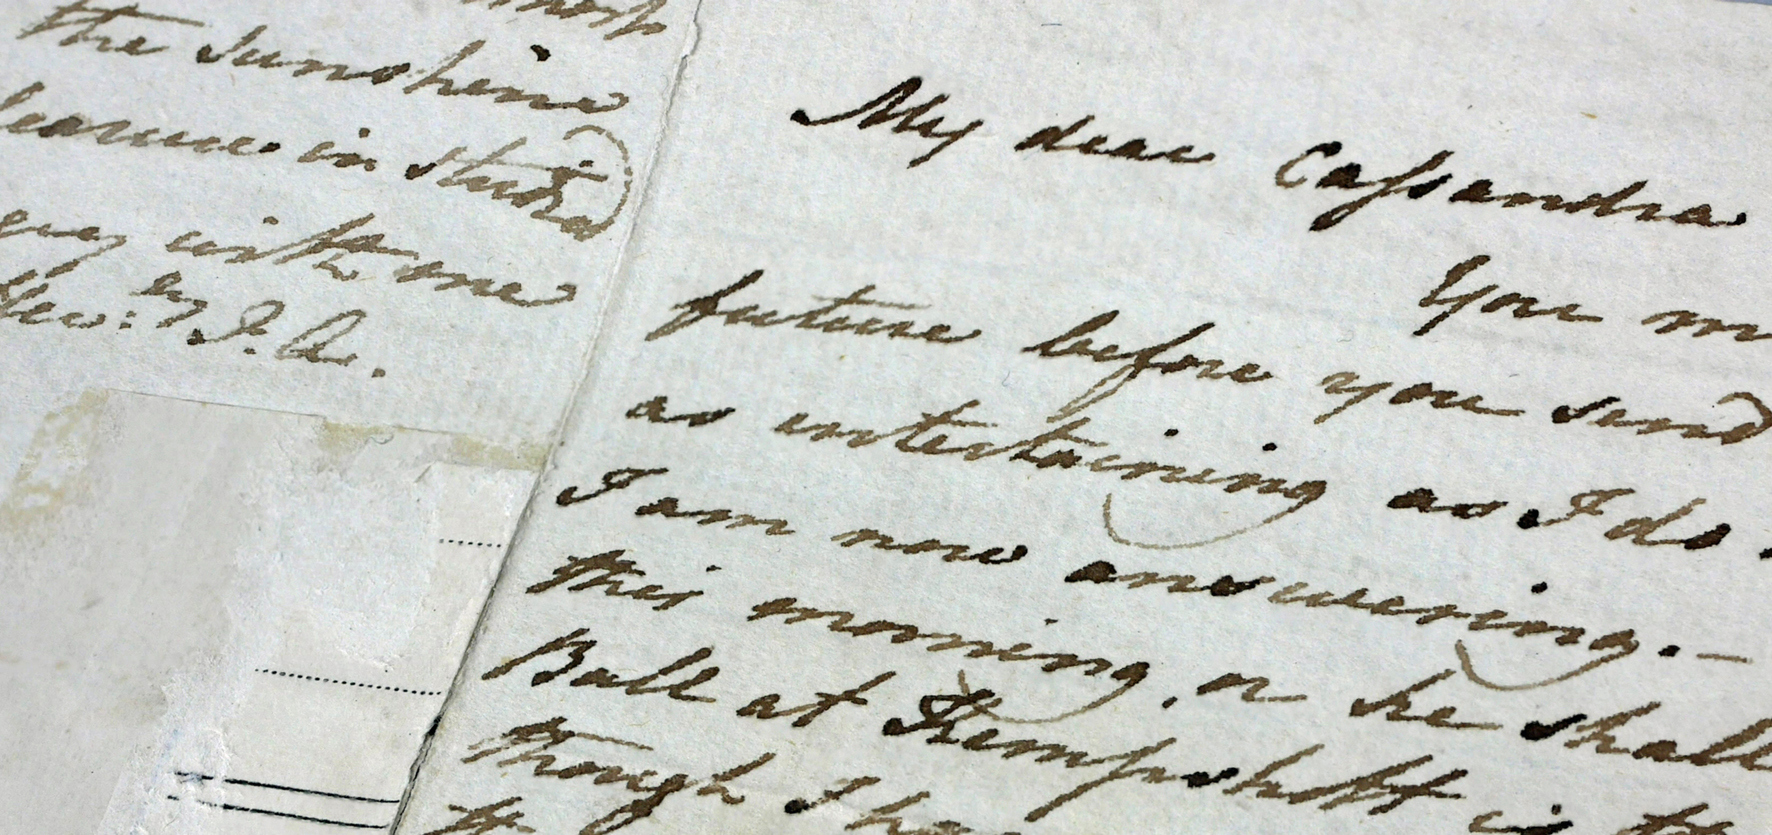 the sunshine
in
with me
J. A.
My dear Caſsandra
You
future before you send
as entertaining as I do.
I am now answering. —
this morning, or he shall
Ball at Kempshott is
though I